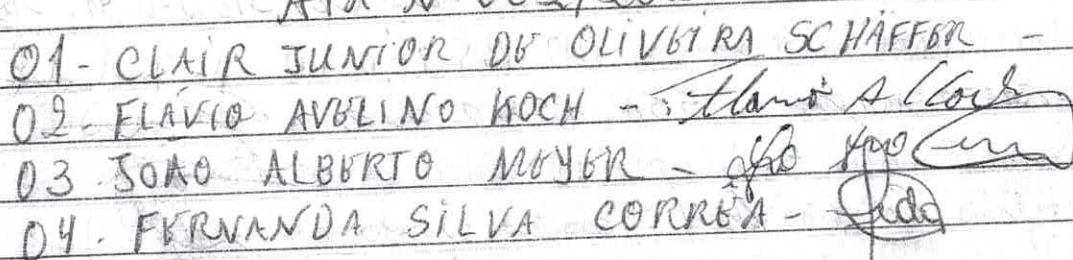 01 - CLAIR JUNIOR DE OLIVEIRA SCHÄFFER -
02 - FLÁVIO AVELINO KOCH - Flavio A Koch
03 - JOAO ALBERTO MEYER -
04 - FERNANDA SILVA CORRÊA -